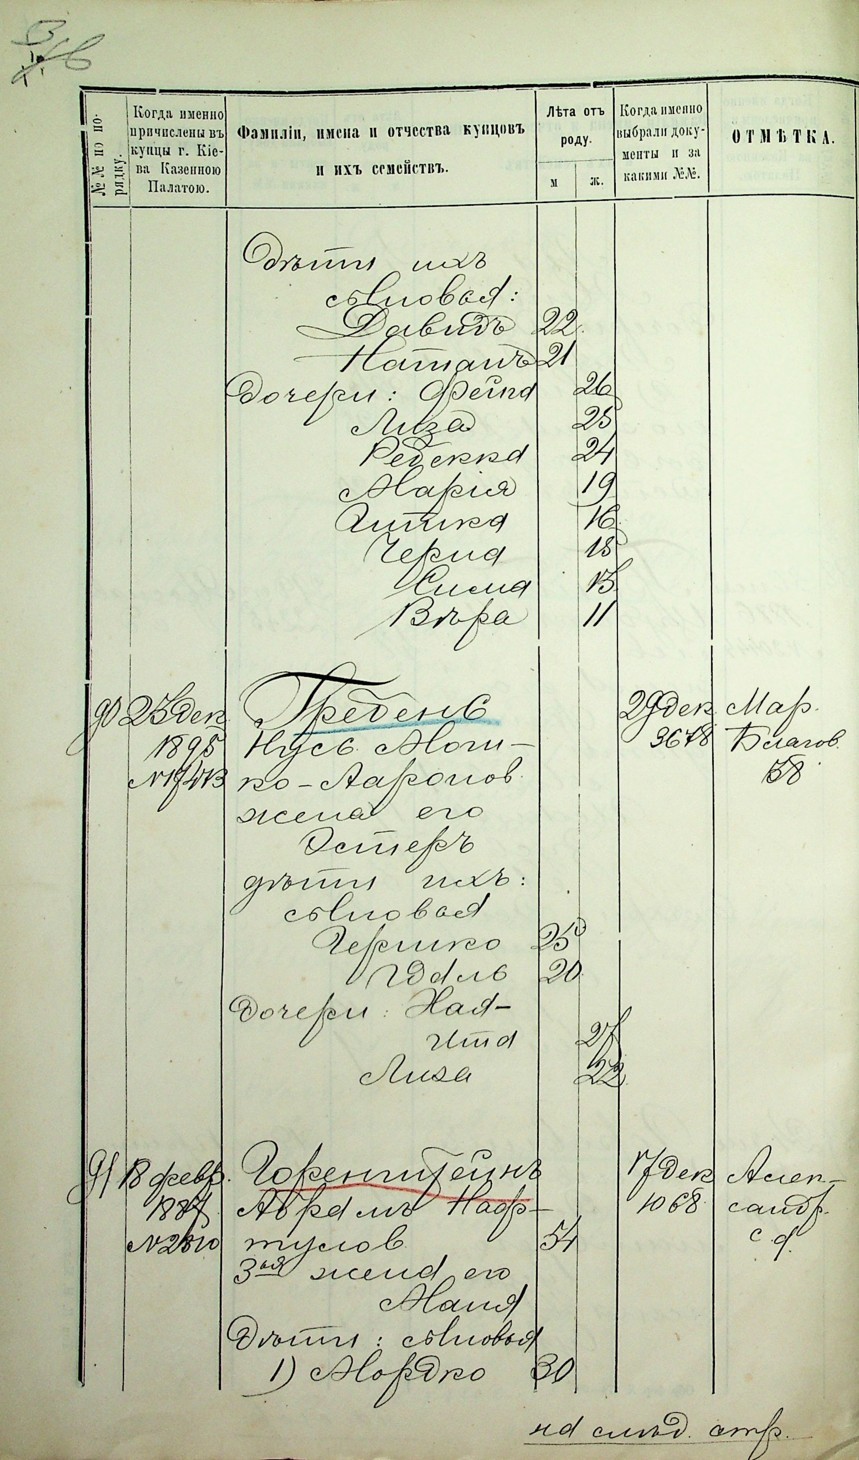 №№ по порядку.
Когда именно причислены въ купцы г. Кіева Казенною Палатою.
Фамиліи, имена и отчества купцовъ и ихъ семействъ.
Лѣта отъ роду.
м
ж.
Когда именно выбрали документы и за какими №№.
ОТМѢТКА.
Дѣти ихъ
сыновья:
Давидъ 22
Натанъ 21
Дочери: Фейга 26
Лиза 25
Ребекка 24
Марія 19
Гитка 16
Черна 15
Сима 13
Вѣра 11
90 23 дек. Гребень 29 дек. Мар.
1895 Нусь Мош- 3678 Благов.
№17413 ко-Ааронов. 58
жена его
Эстеръ
дѣти ихъ:
сыновья
Гершко 25
Идаль 20
Дочери: Хая-
Ита 27
Лиза 22
91 18 февр. Горенштейнъ 17 дек. Алек-
1887 Абрамъ Наф- 1068 сандр.
№2510 тулов. 54 с. д.
3ья жена его
Маня
Дѣти: сыновья
1) Мордко 30
на слѣд. стр.